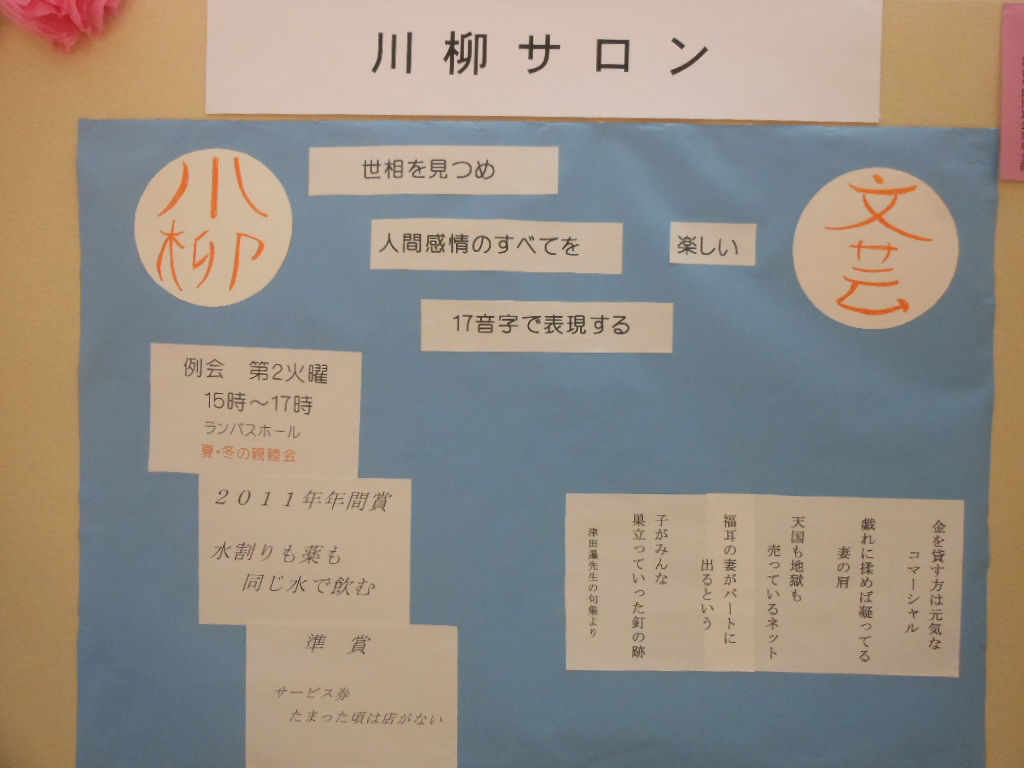 川柳サロン
川柳
世相を見つめ
人間感情のすべてを
楽しい
文芸
17音字で表現する
例会 第2火曜
15時～17時
ランパスホール
夏・冬の親睦会
2011年年間賞
水割りも薬も
同じ水で飲む
準 賞
サービス券
たまった頃は店がない
金を貸す方は元気な
コマーシャル
戯れに揉めば凝ってる
妻の肩
天国も地獄も
売っているネット
福耳の妻がパートに
出るという
子がみんな
巣立っていった釘の跡